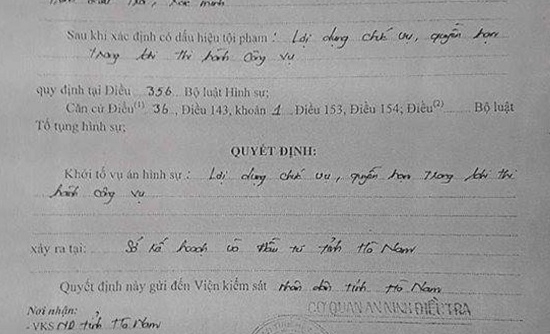 Sau khi xác định có dấu hiệu tội phạm : Lợi dụng chức vụ, quyền hạn
trong khi thi hành công vụ
quy định tại Điều 356 Bộ luật Hình sự;
Căn cứ Điều(1) 36, Điều 143, khoản 1 Điều 153, Điều 154; Điều(2) Bộ luật
Tố tụng hình sự;
QUYẾT ĐỊNH:
Khởi tố vụ án hình sự : Lợi dụng chức vụ, quyền hạn trong khi thi
hành công vụ
xảy ra tại: Sở Kế hoạch và Đầu tư tỉnh Hà Nam
Quyết định này gửi đến Viện kiểm sát nhân dân tỉnh Hà Nam
Nơi nhận: CƠ QUAN AN NINH ĐIỀU TRA
- VKS ND tỉnh Hà Nam